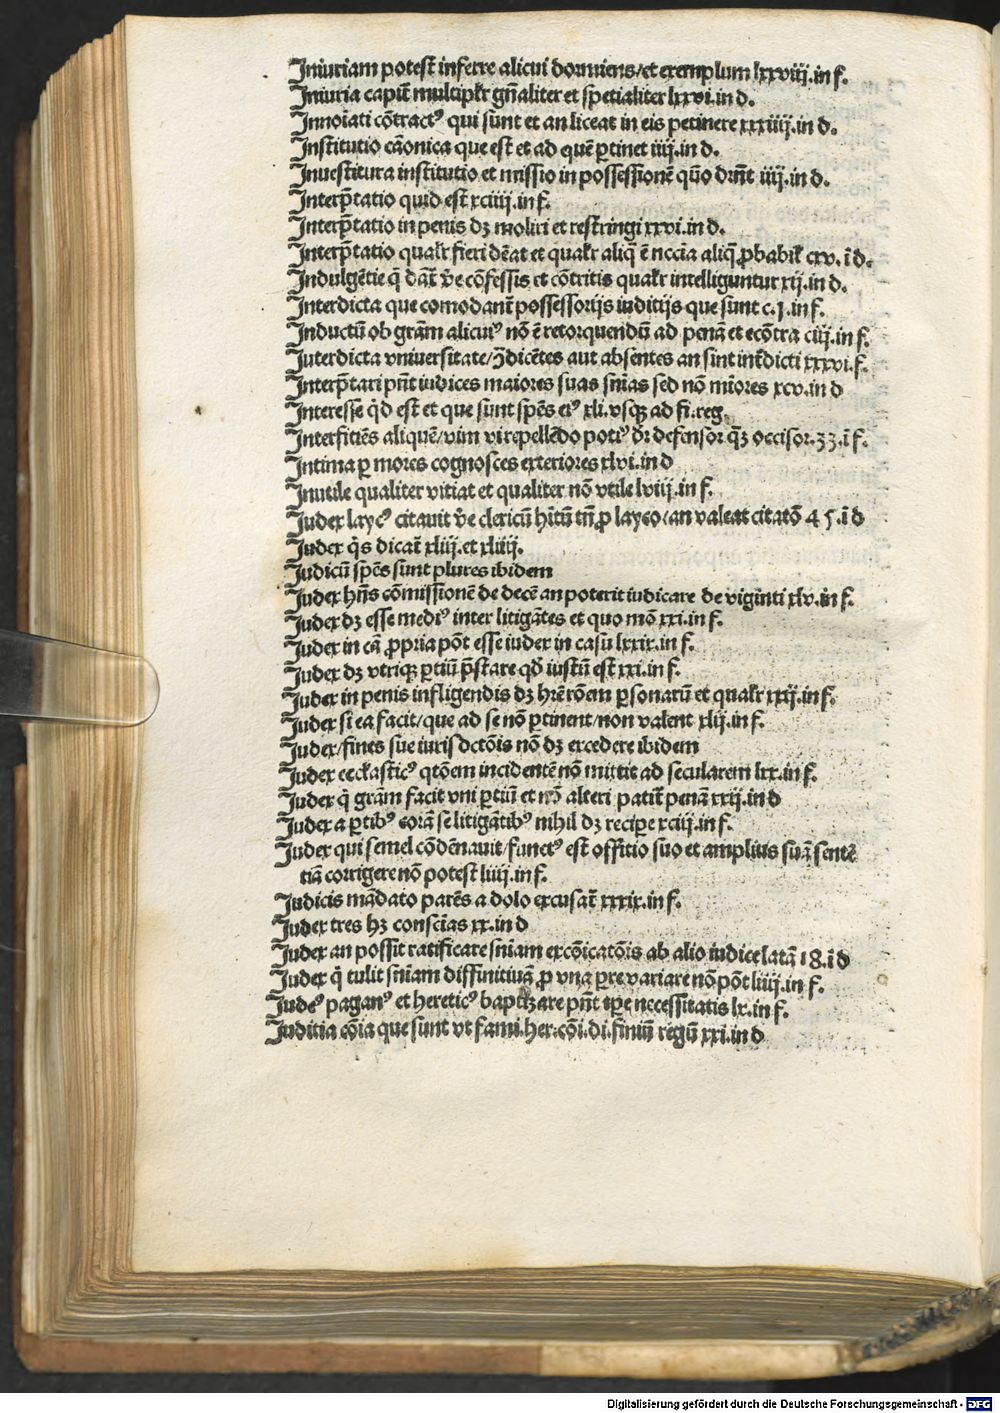 Iniuriam potest inferre alicui dormiens/et exemplum lxxviij.in f.
Iniuria capit̄ multiplr̄ gn̄aliter et spetialiter lxxvi.in d.
Innoīati cōtractꝰ qui sunt et an liceat in eis penitere xxxiiij.in d.
Institutio cāonica que est et ad quē ꝑtinet iiij.in d.
Inuestitura institutio et missio in possessionē quō dr̄nt iiij.in d.
Interp̄tatio quid est xciiij.in f.
Interp̄tatio in penis dꝫ moliri et restringi xxvi.in d.
Interp̄tatio qualr̄ fieri dēat et qualr̄ aliq̄ ē nccīa aliq̄ ꝓbabil̄ cxv.ī d.
Indulgētie q̄ dāt̄ v̄e cōfessis et cōtritis qualr̄ intelliguntur xij.in d.
Interdicta que comodant̄ possessorijs iuditijs que sunt c.j.in f.
Inductū ob grām alicuiꝰ nō ē retorquendū ad penā et ecōtra ciij.in f.
Interdicta vniuersitate/ꝯ̄dicētes aut absentes an sint int̄dicti xxxvi.f.
Interp̄tari pn̄t iudices maiores suas sn̄ias sed nō miōres xcv.in d
Interesse q̇d est et que sunt sp̄es eiꝰ xli.vsqꝫ ad fi.reg.
Interfitiēs aliquē/vim vi repellēdo potiꝰ dr̄ defensor q̄ꝫ occisor.33.ī f.
Intima ꝑ mores cognosces exteriores xlvi.in d
Inutile qualiter vitiat et qualiter nō vtile lviij.in f.
Iudex laycꝰ citauit v̄e clericū h̄itū tn̄ ꝓ layco/an valeat citatō 45.ī d
Iudex q̇s dicat̄ xliij.et xliiij.
Iudicū sp̄es sunt plures ibidem
Iudex hn̄s cōmissionē de decē an poterit iudicare de viginti xlv.in f.
Iudex dꝫ esse mediꝰ inter litigātes et quo mō xxi.in f.
Iudex in cā ꝓpria pōt esse iudex in casu lxxix.in f.
Iudex dꝫ vtriqꝫ ꝑtiū p̄stare qd̄ iustū est xxi.in f.
Iudex in penis infligendis dꝫ hr̄e rōem ꝑsonarū et qualr̄ xxij.in f.
Iudex si ea facit/que ad se nō ꝑtinent/non valent xlij.in f.
Iudex/fines sue iurisdctōis nō dꝫ excedere ibidem
Iudex eccl̄asticꝰ qtōem incidentē nō mittit ad secularem lxx.in f.
Iudex q̇ grām facit vni ꝑtiū et nō alteri patit̄ penā xxij.in d
Iudex a ꝑtibꝰ corā se litigātibꝰ nihil dꝫ recipe xciij.in f.
Iudex qui semel cōdēnauit/functꝰ est offitio suo et amplius suā sentē
tiā corrigere nō potest liiij.in f.
Iudicis mādato parēs a dolo excusat̄ xxxix.in f.
Iudex tres hꝫ consciās xx.in d
Iudex an possit ratificare sn̄iam excōicatōis ab alio iudice latā 18.ī d
Iudex q̇ tulit sn̄iam diffinitiuā ꝓ vna ꝑre variare nō pōt liiij.in f.
Iudeꝰ paganꝰ et hereticꝰ baptizare pn̄t tꝑe necessitatis lx.in f.
Iuditia cōia que sunt vt fami.her.cōi.di.finiū regū xxi.in d
Digitalisierung gefördert durch die Deutsche Forschungsgemeinschaft - DFG